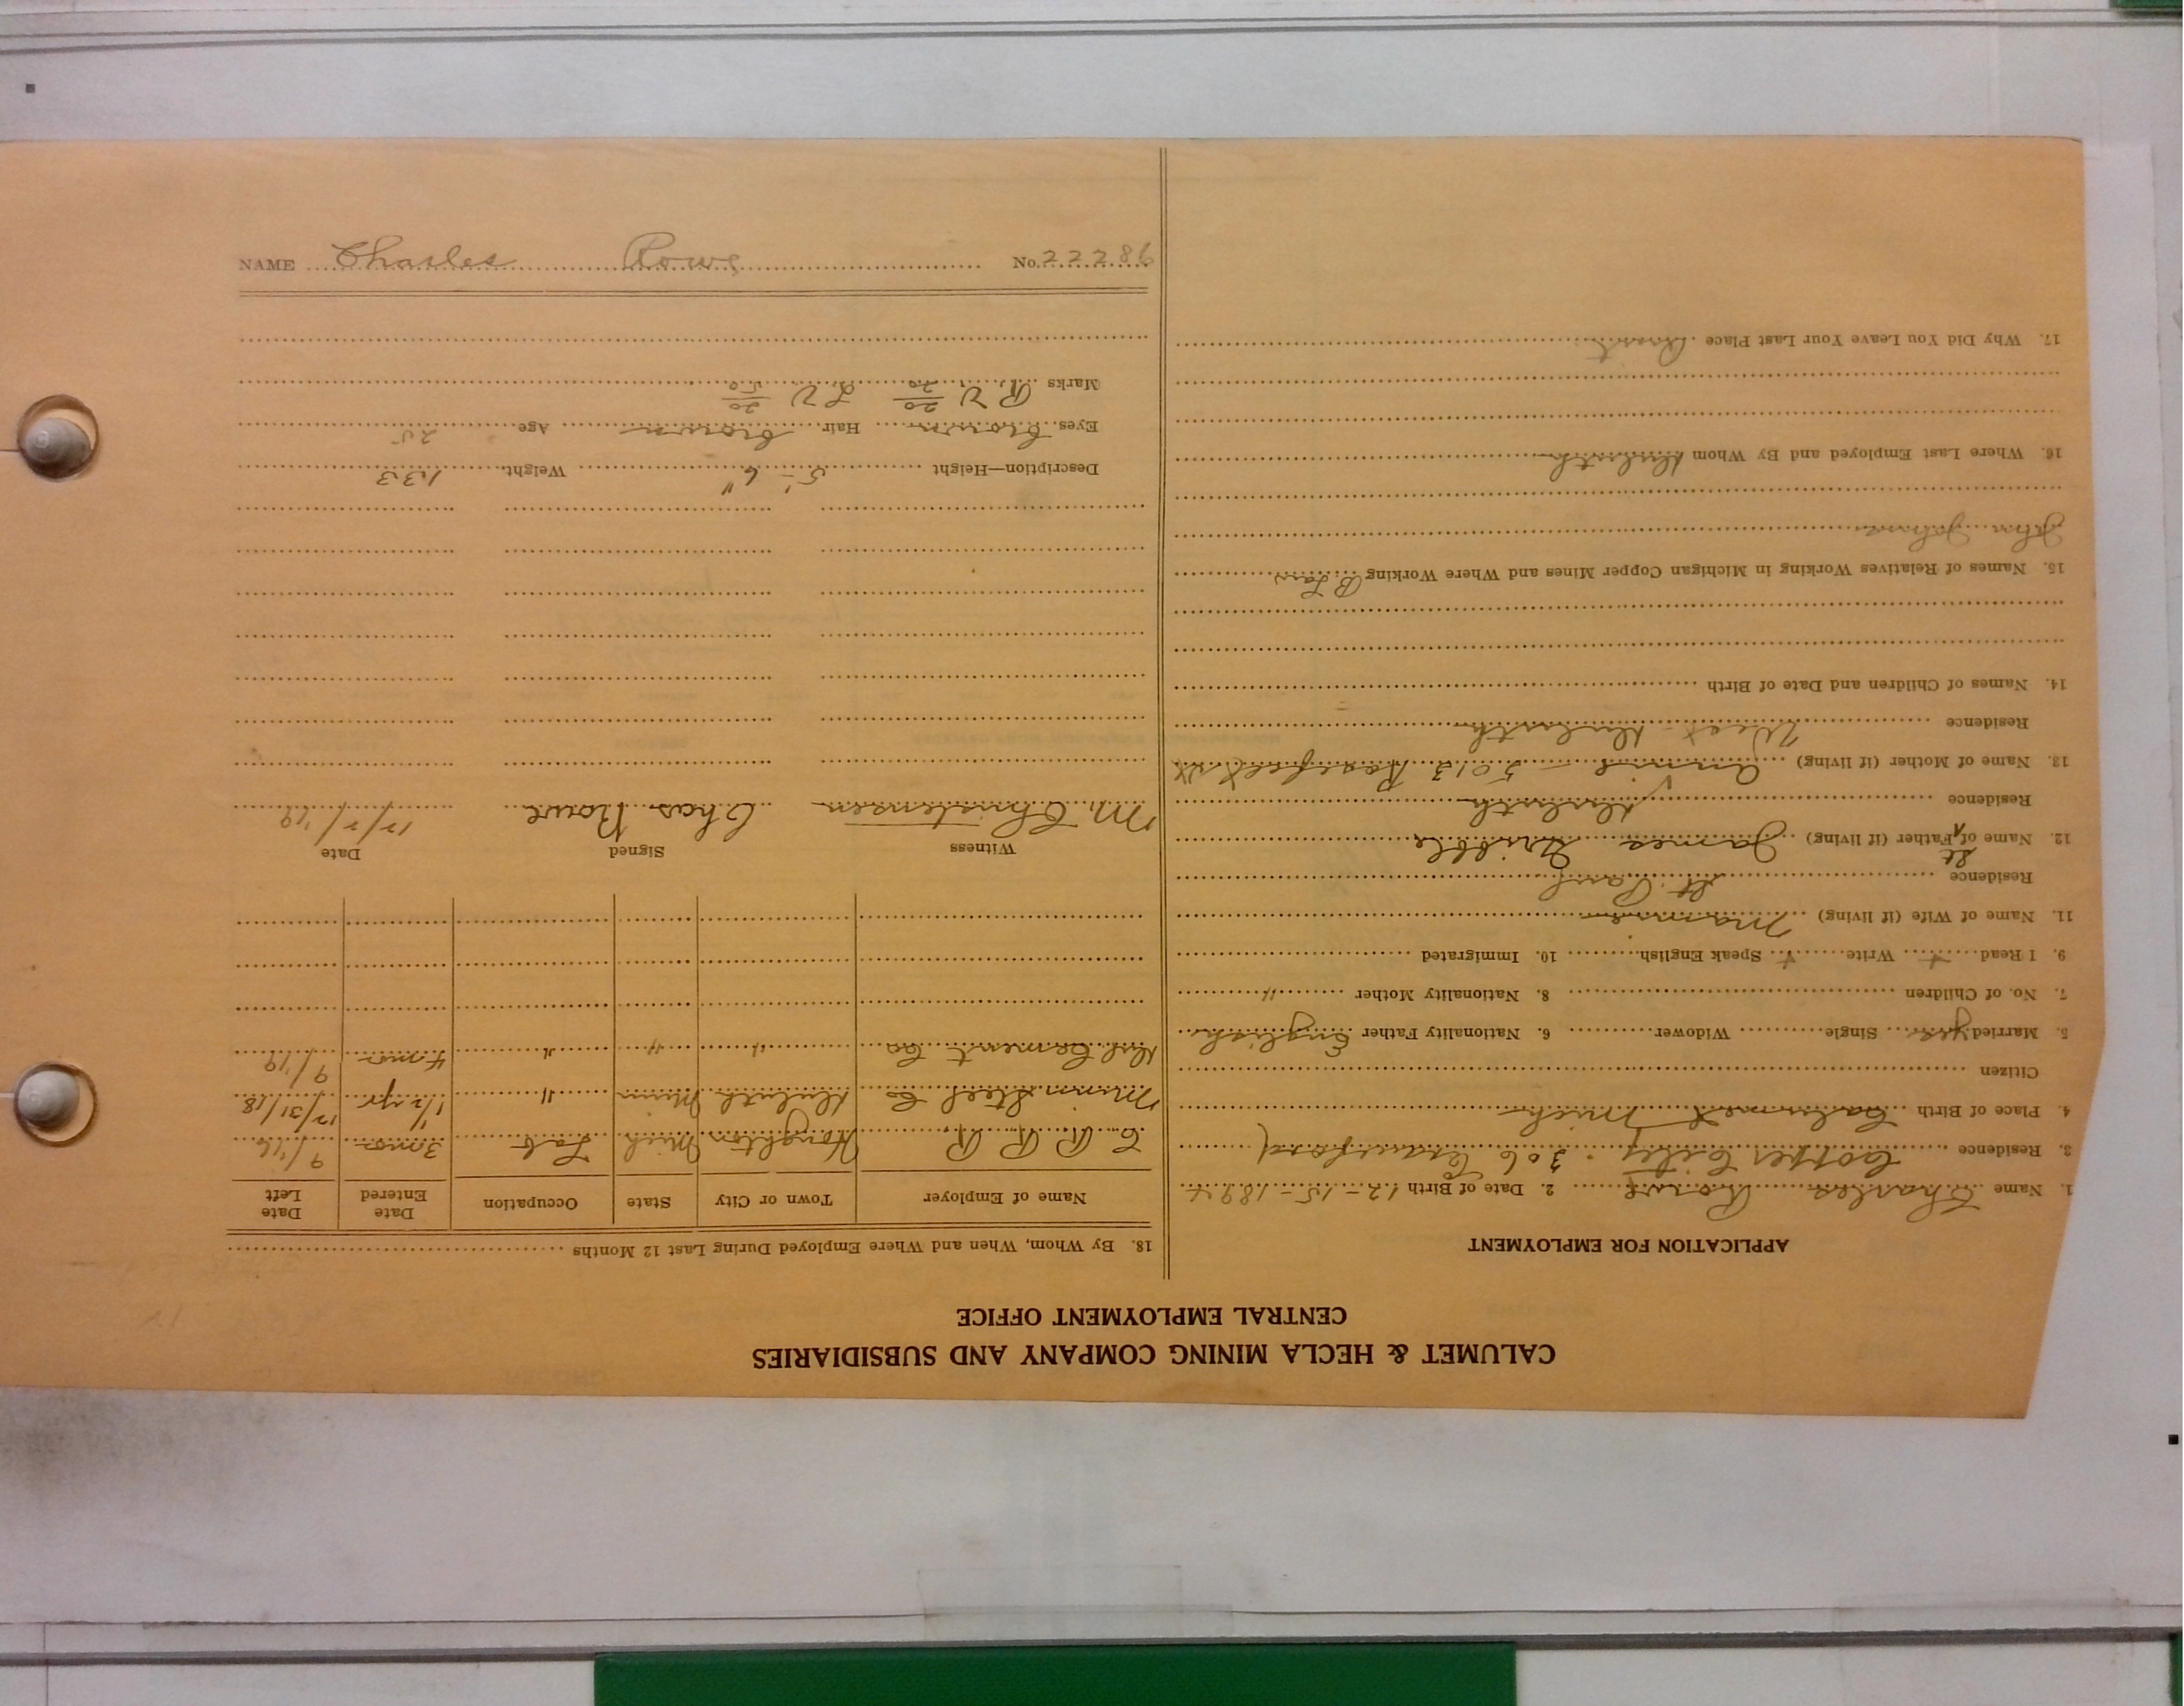 CALUMET & HECLA MINING COMPANY AND SUBSIDIARIES
CENTRAL EMPLOYMENT OFFICE
APPLICATION FOR EMPLOYMENT
1. Name Charles Rowe 2. Date of Birth 12-15-1894
3. Residence Copper City. 306 Crawford
4. Place of Birth Calumet Mich
Citizen
5. Married yes Single Widower 6. Nationality Father English
7. No. of Children 8. Nationality Mother "
9. I Read + Write + Speak English 10. Immigrated
11. Name of Wife (if living) Mamie
Residence St. Paul
12. Name of St Father (if living) James Gribble
Residence Duluth
13. Name of Mother (if living) Annie - 5013 St
Residence West Duluth
14. Names of Children and Date of Birth
15. Names of Relatives Working in Michigan Copper Mines and Where Working B Law
John Johns
16. Where Last Employed and By Whom Duluth
17. Why Did You Leave Your Last Place Quit
18. By Whom, When and Where Employed During Last 12 Months
Name of Employer Town or City State Occupation Date Entered Date Left
C R R R Houghton Mich Lab 3 mos 9/16
Minn Steel Co Duluth Minn " 1 1/2 yr 12/31/18
Dul Cement Co " " " 4 mos 9/19
Witness Signed Date
M. Christensen Chas Rowe 12/2/19
Description—Height 5'-6" Weight 133
Eyes brown Hair brown Age 25
Marks R V 20/20 L V 20/50
NAME Charles Rowe No. 22286